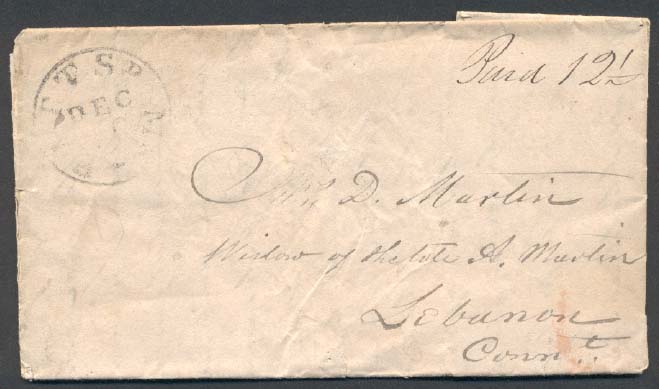 Paid 12½
DEC
Mrs D. Martin
Widow of the late A. Martin
Lebanon
Connt.